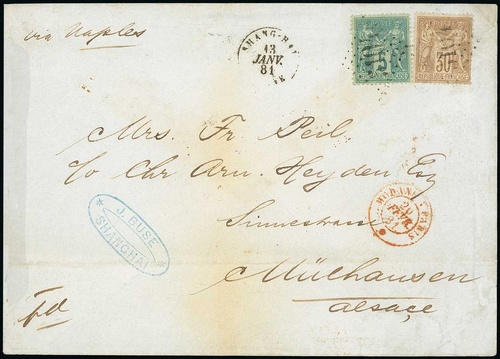 via Naples
SHANG-HAI
13
JANV.
81
5
30
Mrs. Fr Peil.
c/o Chr Arn. Heyden Esq
Sinnestrasse
Mülhausen
Alsace
J. BUSE
SHANGHAI
MODANE
PARIS
20
FEVR
81
pd